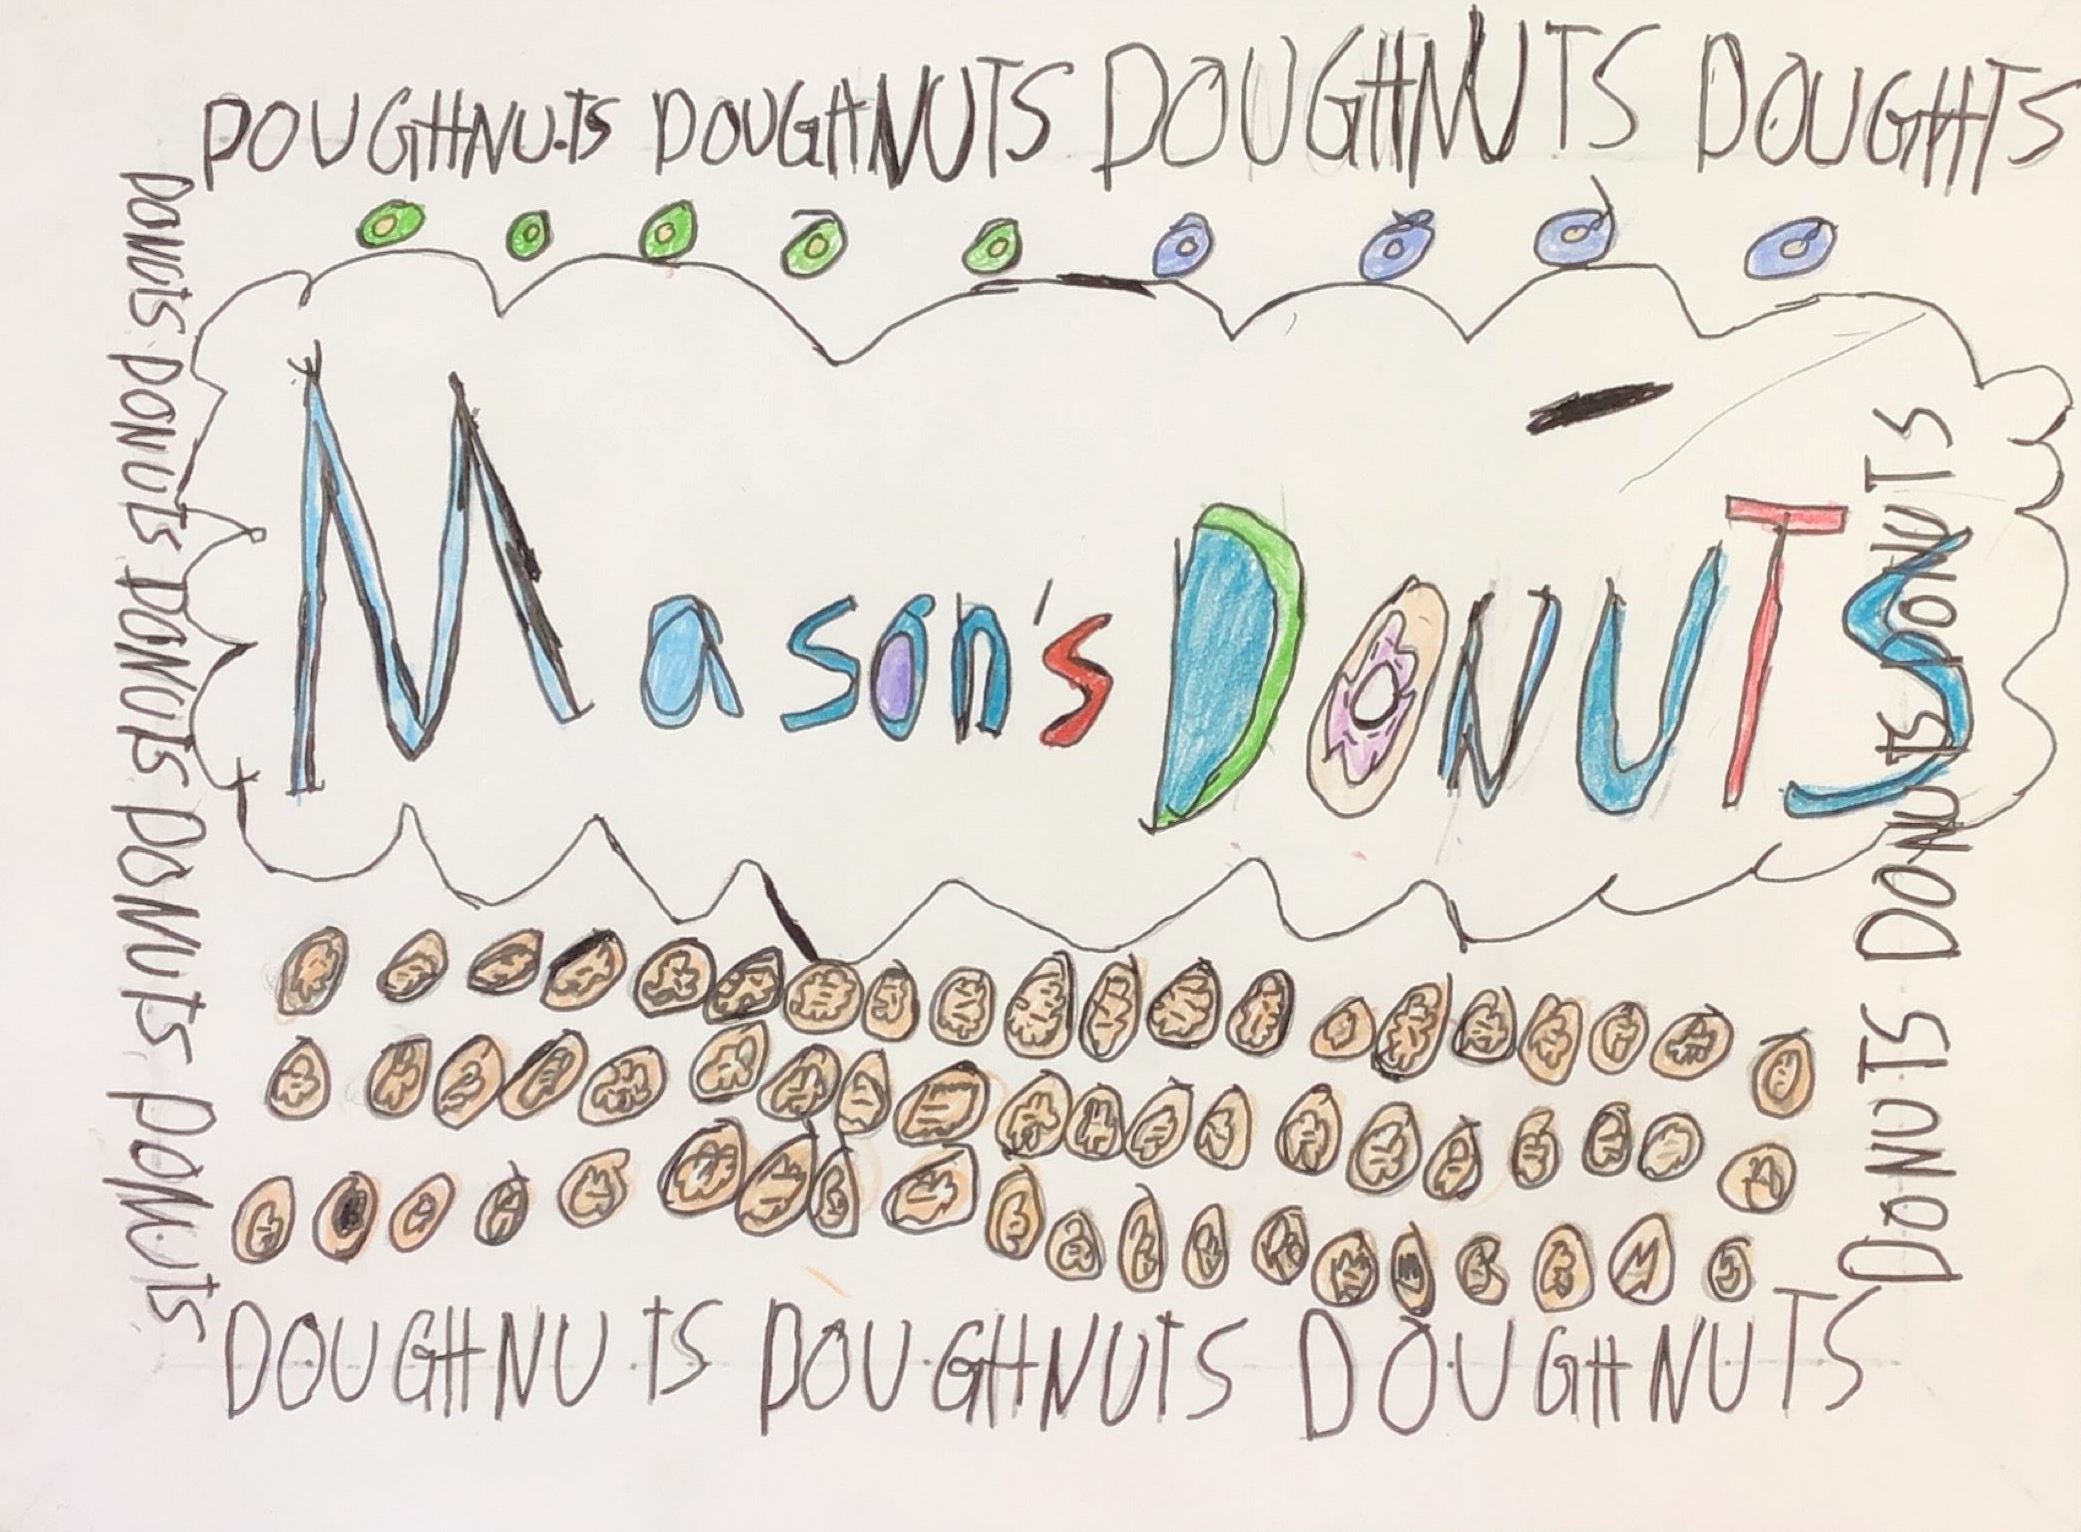 DOUGHNUTS DOUGHNUTS DOUGHNUTS DOUGHTS
DONUTS DONUTS DONUTS DONUTS DONUTS
Mason's DONUTS
DONUTS DONUTS DONUTS
DOUGHNUTS DOUGHNUTS DOUGHNUTS